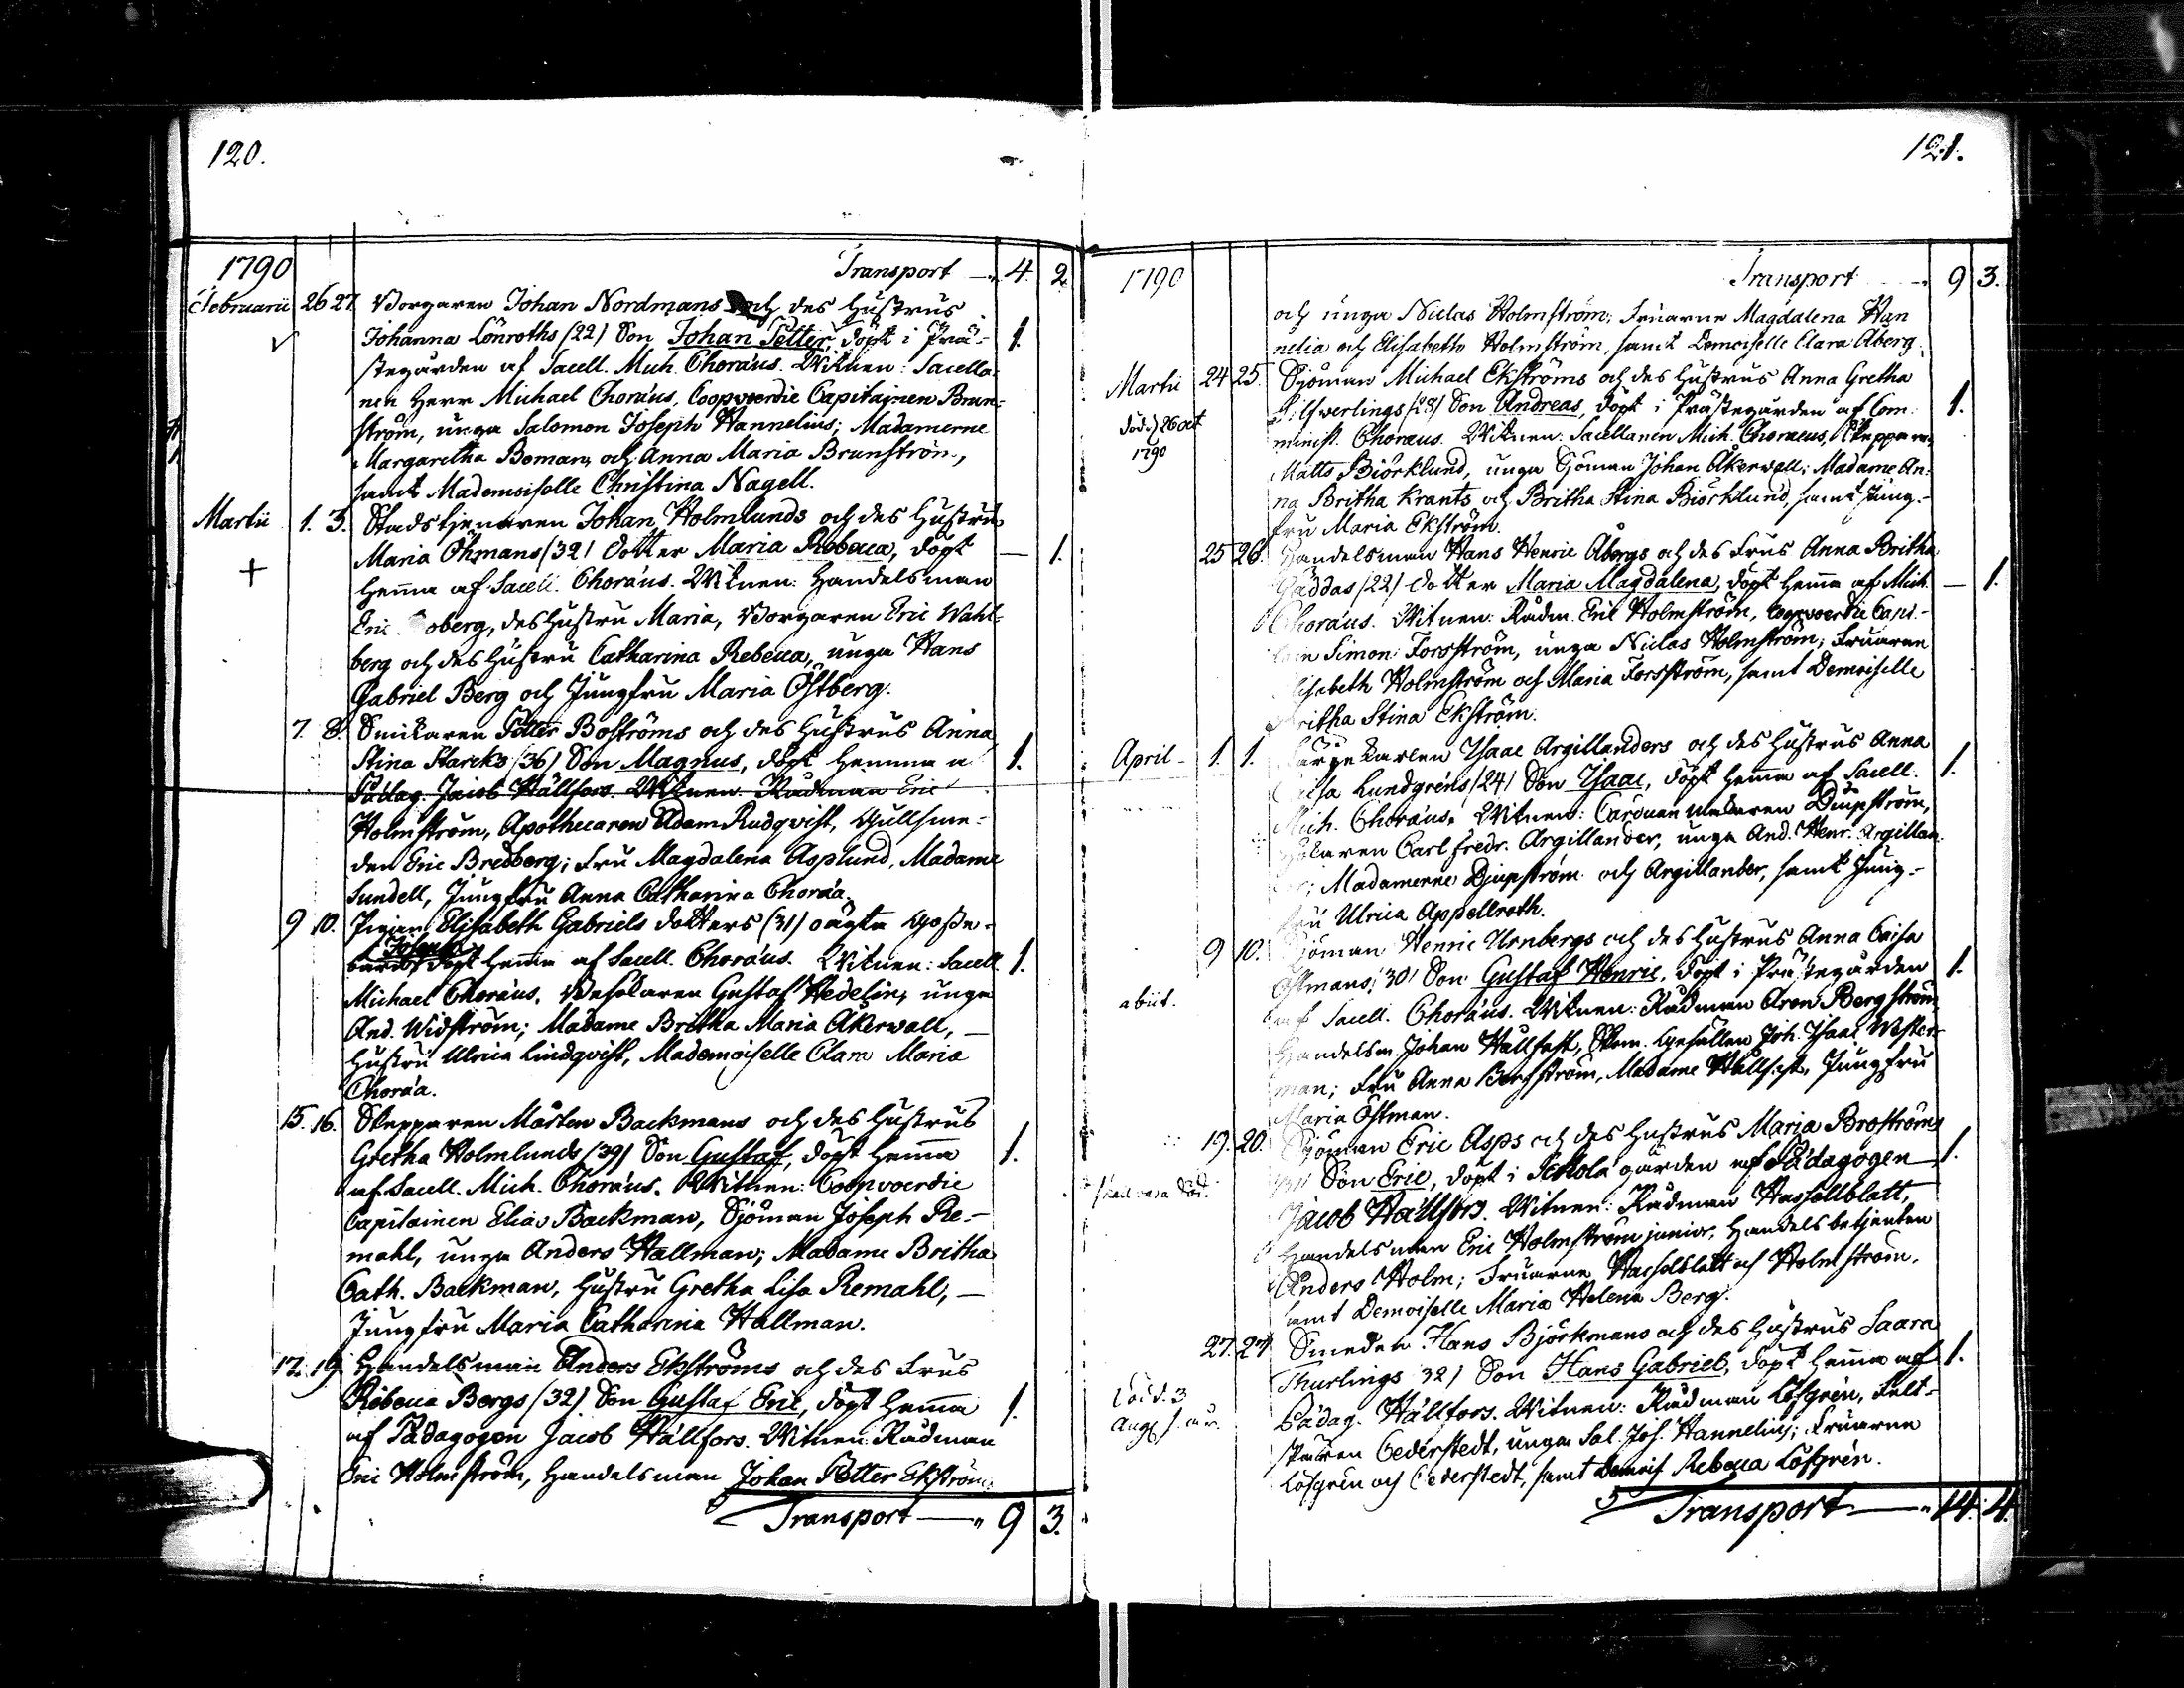 120.
1790 Transport — 4. 2.
Februarii 26 27. Borgaren Johan Nordmans och des Hustrus
Johanna Lönroths (22) Son Johan Petter, döpt i Prä- 1.
stegården af Sacell. Mich. Choræus. Witnen: Sacella-
nen Herr Michael Choræus, Coopvoerdie Capitainen Brun-
ström, unga Salomon Joseph Hannelius; Madamerne
Margaretha Boman, och Anna Maria Brunström,
samt Mademoiselle Christina Nagell.
Martii 1. 3. Stadstjenaren Johan Holmlunds och des Hustrus
Maria Öhmans (32) dotter Maria Rebecca, döpt — 1.
hemma af Sacell. Choræus. Witnen: Handelsman
Eric oberg, des Hustru Maria, Borgaren Eric Wahl-
berg och des Hustru Catharina Rebecca, unga Hans
Gabriel Berg och Jungfru Maria Östberg.
7. 8. Snickaren Petter Boströms och des Hustrus Anna
Stina Starcks (36) Son Magnus, döpt hemma a 1.
Pädag. Jacob Hällfors. Witnen. Rådman Eric
Holmström, Apothecaren Adam Rudqvist, Gullsme-
den Eric Bredberg; Fru Magdalena Asplund, Madame
Sundell, Jungfru Anna Catharina Choræa.
9 10. Pigan Elisabeth Gabriels dotters (31) oägta Gosse-
barn döpt hemma af Sacell. Choræus. Witnen: Sacell. 1.
Michael Choræus, Gustaf Hedelin, unga
And. Widström; Madame Britha Maria Åkerwall, —
Hustru Ulrica Lindqvist, Mademoiselle Clara Maria
Choræa.
15. 16. Skepparen Mårten Backmans och des Hustrus
Gretha Holmlunds (39) Son Gustaf, döpt hemma 1.
af Sacell. Mich. Choræus. Witnen: Coopvoerdie
Capitainen Elias Backman, Sjöman Joseph Re-
mahl, unga Anders Hallman; Madame Britha
Cath. Backman, Hustru Gretha Lisa Remahl, —
Jungfru Maria Catharina Hallman.
17. 19. Handelsman Anders Ekströms och des Frus
Rebecca Bergs (32) Son Gustaf Eric, döpt hemma 1.
af Pädagogen Jacob Hällfors. Witnen: Rådman
Eric Holmström, Handelsman Johan Petter Ekström
Transport — 9 3.
121.
1790 Transport — 9 3.
och unga Niclas Holmström; Fruarne Magdalena Han
nelia och Elisabeth Holmström, samt Demoiselle Clara Åberg.
Martii 24 25. Sjöman Michael Ekströms och des Hustrus Anna Gretha
Silfwerlings (28) Son Andreas, döpt i Prästegården af Com. 1.
död 26 oct
minist. Choræus. Witnen: Sacellanen Mich. Choræus, Skepparen
1790
Matts Biörklund, unga Sjöman Johan Åkerwall; Madame An-
na Britha Krants och Britha Stina Biörklund, samt Jung-
fru Maria Ekström.
25 26. Handelsman Hans Henric Åbergs och des Frus Anna Britha
Gäddas (22) dotter Maria Magdalena, döpt hemma af Mich. — 1.
Choræus. Witnen: Rådm. Eric Holmström, Coopvoerdie Capi-
tain Simon Forsström, unga Niclas Holmström; Fruarne
Elisabeth Holmström och Maria Forsström, samt Demoiselle
Britha Stina Ekström.
April 1. 1. Isaac Argillanders och des Hustrus Anna
Caisa Lundgréns (24) Son Isaac, döpt hemma af Sacell. 1.
Mich. Choræus. Witnen: Carduansmakaren Diupström,
Carl Fredr. Argillander, unga And. Henr. Argillan-
der; Madamerne Djupström och Argillander, samt Jung-
fru Ulrica Appellroth.
9 10. Sjöman Henric Urnbergs och des Hustrus Anna Caisa
Östmans (30) Son Gustaf Henric, döpt i Prästegården 1.
abiit.
af Sacell. Choræus. Witnen: Rådman Aron Bergström,
Handelsm. Johan Hallfast, Gesällen Joh. Isaac Wester-
man; Fru Anna Bergström, Madame Hallfast, Jungfru
Maria Östman.
19. 20. Sjöman Eric Asps och des Hustrus Maria Broströms
Son Eric, döpt i Schola gården af Pädagogen 1.
skall vara död.
Jacob Hällfors. Witnen: Rådman Hasselblatt,
Handelsman Eric Holmström junior, Handels betjenten
Anders Holm; Fruarne Hasselblatt och Holmström,
samt Demoiselle Maria Helena Berg.
27. 27. Smeden Hans Björkmans och des Hustrus Saara
Thurlings (32) Son Hans Gabriel, döpt hemma af 1.
död. 3
Aug.
Pädag. Hällfors. Witnen: Rådman Löfgrén, Fält-
skären Cederstedt, unga Sal. Jos. Hannelius; Fruarne
Löfgrén och Cederstedt, samt Demois. Rebecca Löfgrén.
Transport — 14. 4.